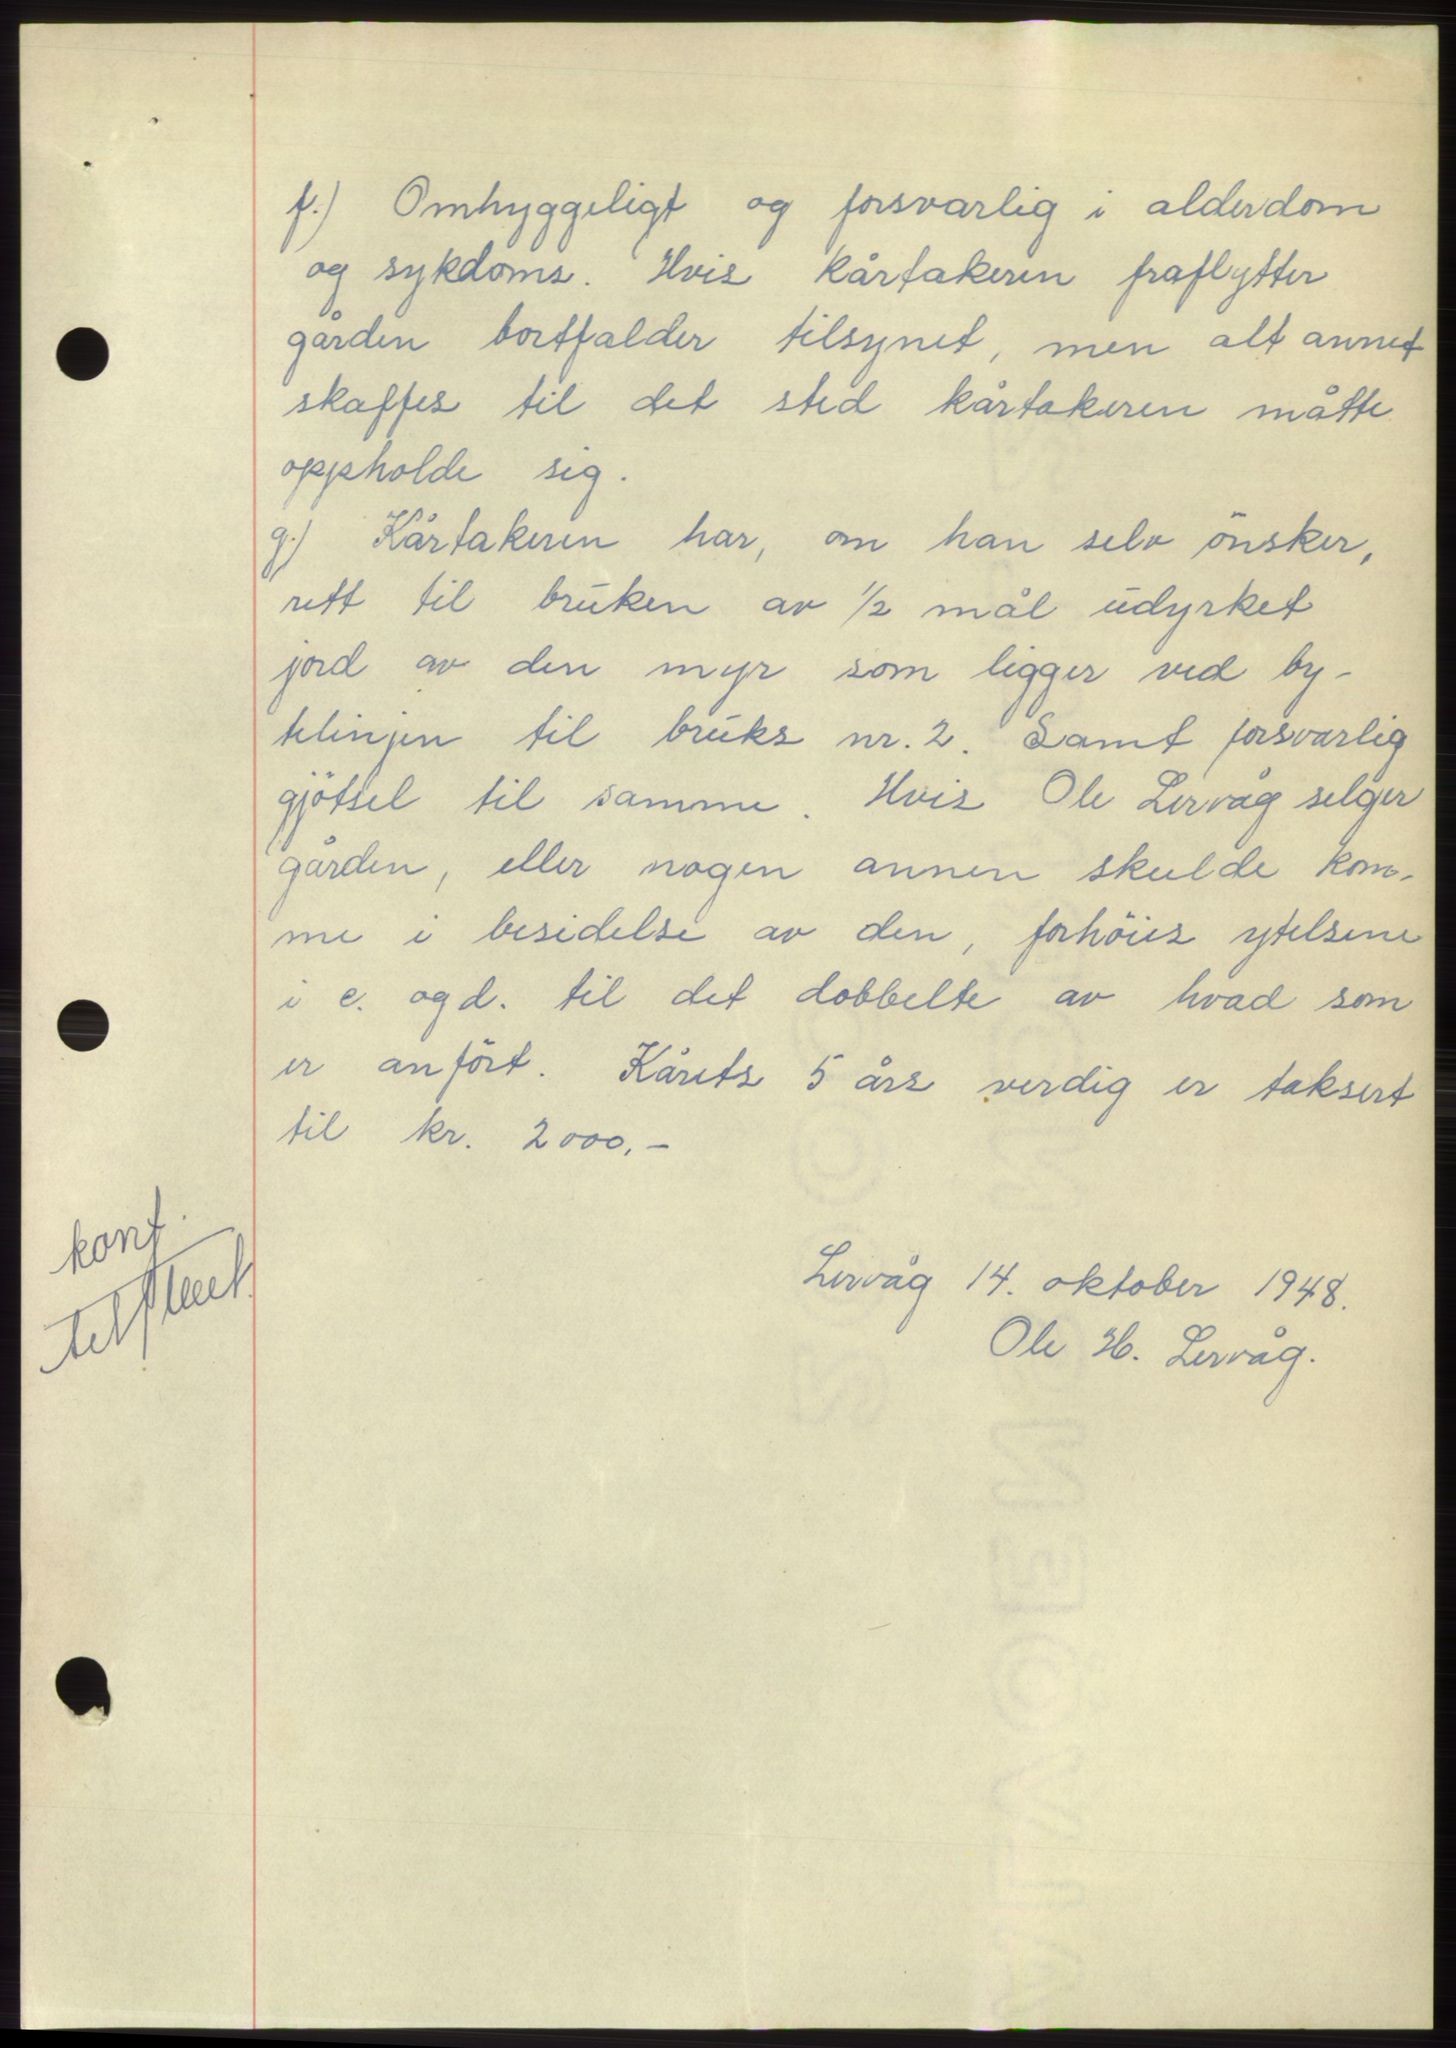 f.) Omhyggeligt og forsvarlig i alderdom
og sykdoms. Hvis kårtakeren fraflytter
gården bortfalder tilsynet, men alt annet
skaffes til det sted kårtakeren måtte
oppholde sig.
g.) Kårtakeren har, om han selv önsker,
rett til bruken av 1/2 mål udyrket
jord av den myr som ligger ved by-
telinjen til bruks nr. 2. Samt forsvarlig
gjötsel til samme. Hvis Ole Lervåg selger
gården, eller nogen annen skulde kom-
me i besidelse av den, forhöies ytelsene
i c. og d. til det dobbelte av hvad som
er anfört. Kårets 5 års verdig er taksert
til kr. 2000.-
konf.
Lervåg 14. oktober 1948.
Ole H. Lervåg.